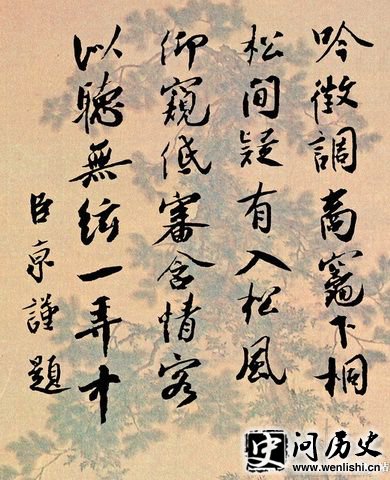 吟徵調商竈下桐
松間疑有入松風
仰窺低審含情客
似聽無絃一弄中
臣京謹題
史问历史
www.wenlishi.cn